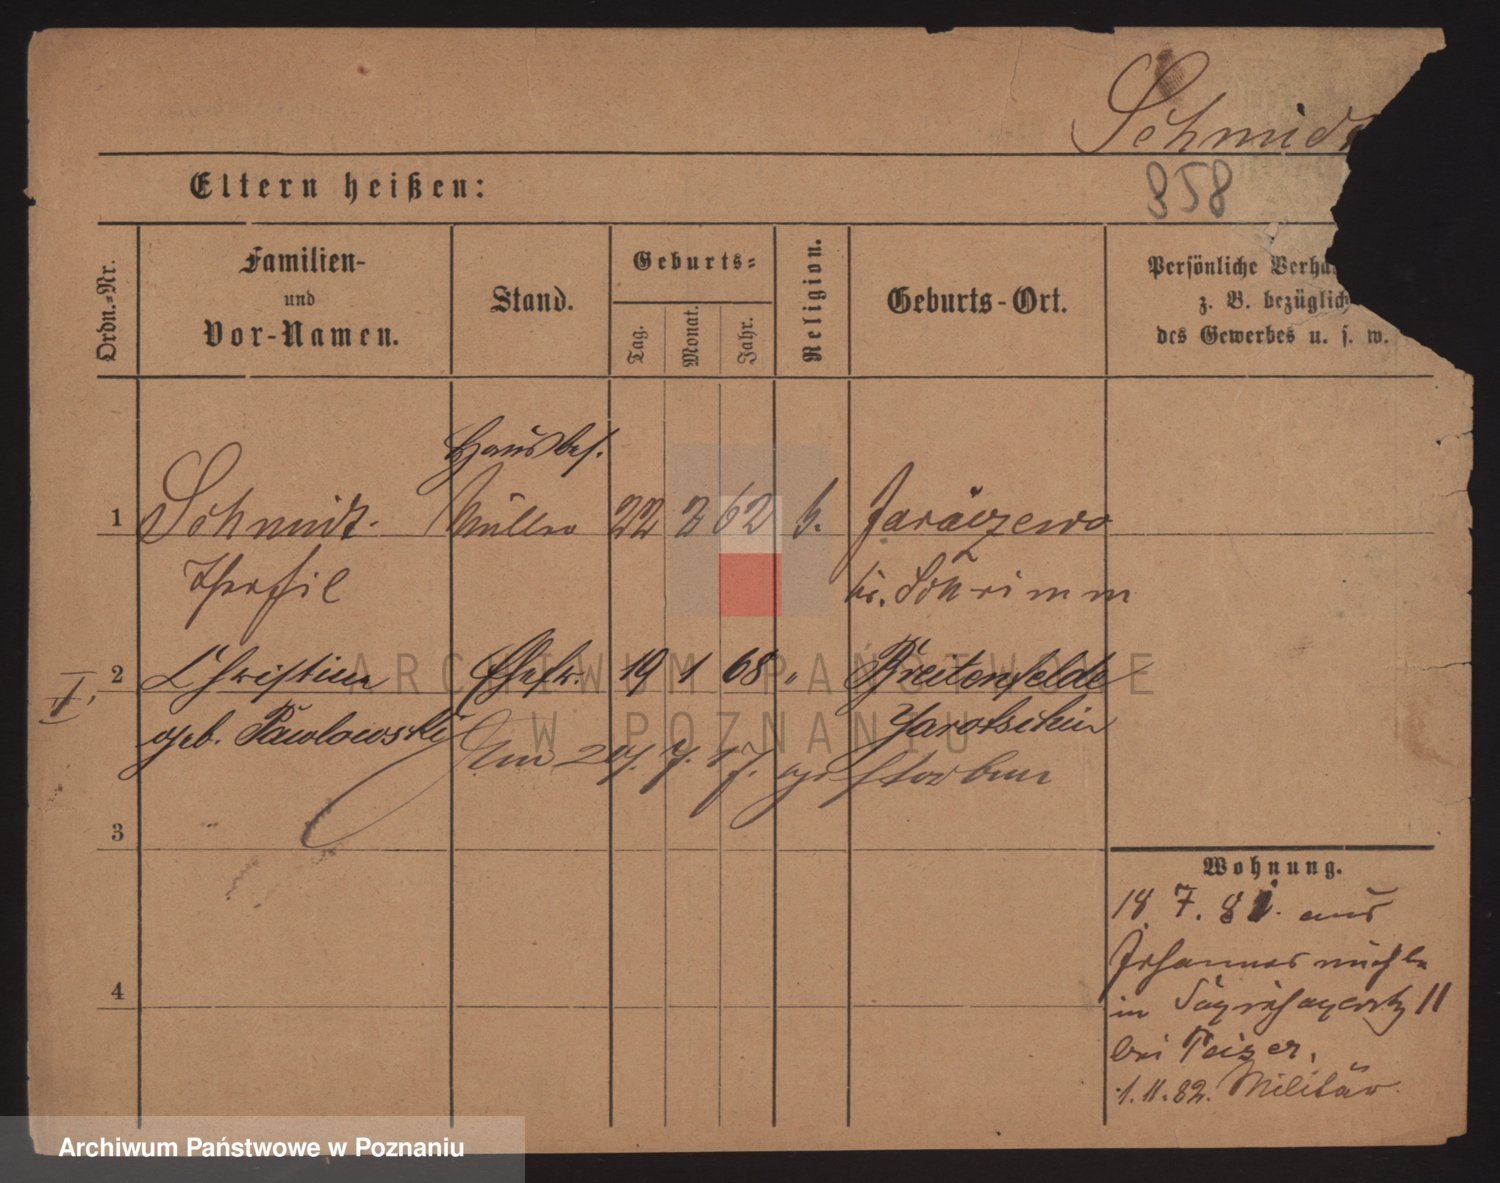 Schmid
858
Eltern heißen:
Ordn.=Nr.
Familien-
und
Vor-Namen.
Stand.
Geburts=
Tag.
Monat.
Jahr.
Religion.
Geburts-Ort.
Persönliche Verha
z. B. bezüglich
des Gewerbes u. s. w.
Hausbes.
1 Schmidt Müller 22 2 62 k. Jaraczewo
Theofil Kr. Schrimm
2 Christine Ehefr. 19 1 68 " Breitenfelde
geb. Pawlowski Jarotschin
Am 24. 7. 17. gestorben
3
4
Wohnung.
18 7. 81. aus
Johannesmühle
in 11
bei Peiser.
1. 11. 82. Militär
ARCHIWUM PAŃSTWOWE
W POZNANIU
Archiwum Państwowe w Poznaniu